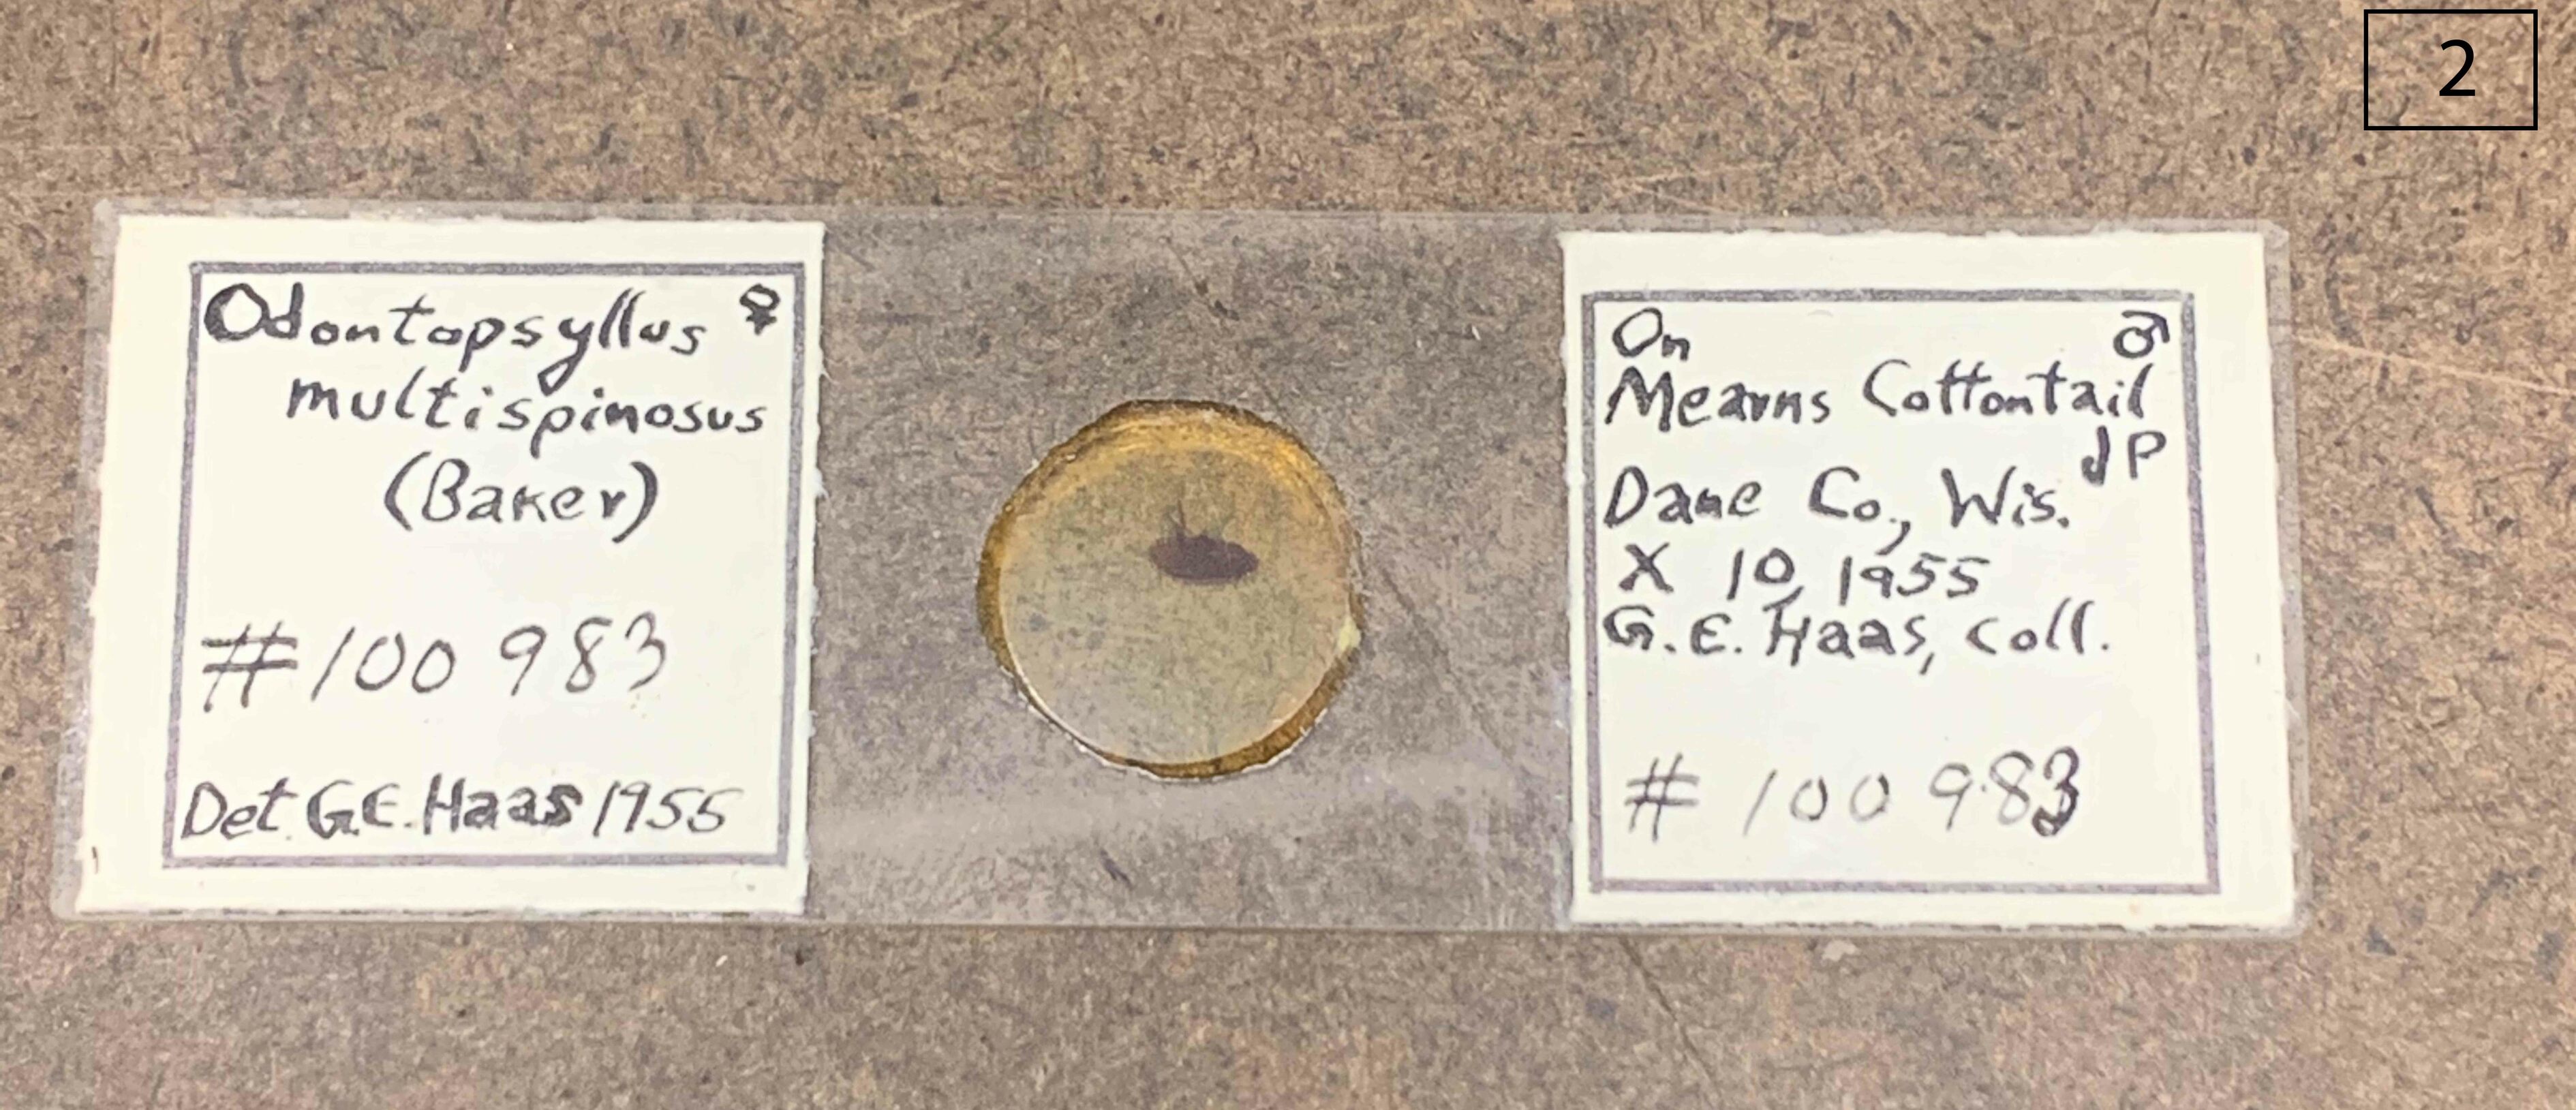 2
Odontopsyllus ♀
multispinosus
(Baker)
#100 983
Det. G.E. Haas 1955
On ♂
Mearns Cottontail
JP
Dane Co., Wis.
X 10, 1955
G.E. Haas, coll.
# 100 983